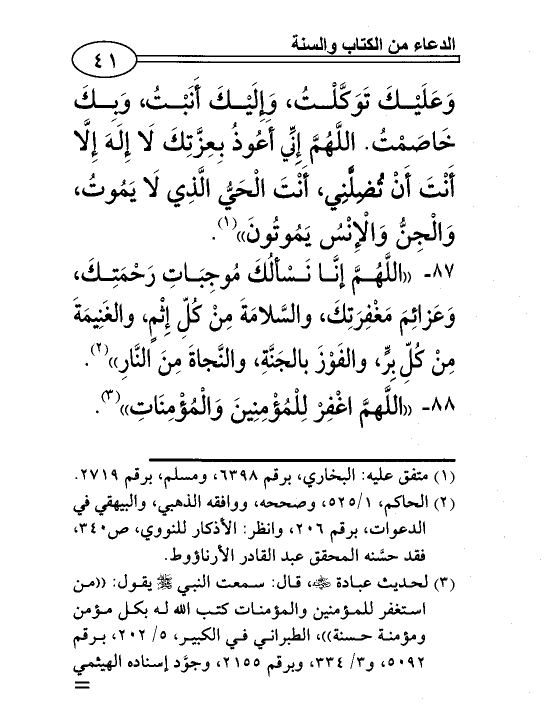 الدعاء من الكتاب والسنة
٤١
وَعَلَيْـكَ تَوَكَّلْـتُ، وَإِلَيْـكَ أَنَبْـتُ، وَبِـكَ
خَاصَمْتُ. اللَّهُمَّ إِنِّي أَعُوذُ بِعِزَّتِكَ لَا إِلَهَ إِلَّا
أَنْتَ أَنْ تُضِلَّنِي، أَنْتَ الْحَيُّ الَّذِي لَا يَمُوتُ،
وَالْجِنُّ وَالْإِنْسُ يَمُوتُونَ»(١).
٨٧- «اللَّهُـمَّ إِنَّـا نَـسْأَلُكَ مُوجِبَـاتِ رَحْمَتِـكَ،
وَعَزَائِمَ مَغْفِرَتِكَ، والسَّلامَةَ مِنْ كُلِّ إِثْمٍ، والغَنِيمَةَ
مِنْ كُلِّ بِرٍّ، والفَوْزَ بالجَنَّةِ، والنَّجاةَ مِنَ النَّارِ»(٢).
٨٨- «اللَّهمَّ اغْفِرْ لِلْمُؤْمِنِينَ وَالْمُؤْمِنَاتِ»(٣).
(١) متفق عليه: البخاري، برقم ٦٣٩٨، ومسلم، برقم ٢٧١٩.
(٢) الحاكم، ١/ ٥٢٥، وصححه، ووافقه الذهبي، والبيهقي في
الدعوات، برقم ٢٠٦، وانظر: الأذكار للنووي، ص٣٤٠،
فقد حسَّنه المحقق عبد القادر الأرناؤوط.
(٣) لحديث عبادة ﷺ، قال: سمعت النبي ﷺ يقول: ((من
استغفر للمؤمنين والمؤمنات كتب الله له بكل مؤمن
ومؤمنة حسنة))، الطبراني في الكبير، ٥/ ٢٠٢، برقم
٥٠٩٢، و٣/ ٣٣٤، وبرقم ٢١٥٥، وجوَّد إسناده الهيثمي
=